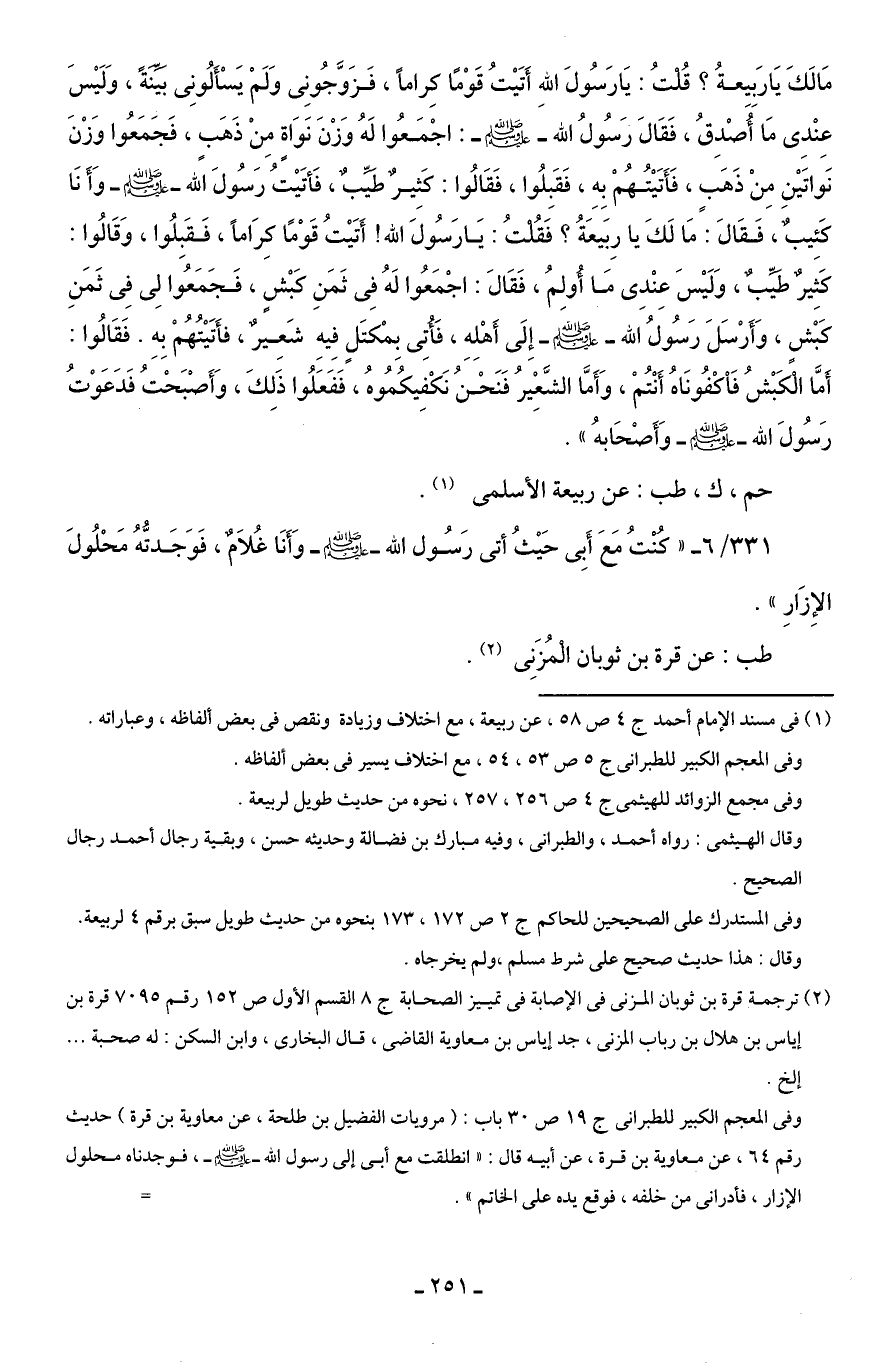 مَالَكَ يَارَبِيعةُ ؟ قُلْتُ : يَارَسُولَ الله أَتَيْتُ قَوْمًا كراماً ، فَزَوَّجُونى وَلَمْ يَسْأَلُونى بَيِّنَةً ، وَلَيْسَ
عنْدى مَا أُصْدقُ ، فَقَالَ رَسُولُ الله - ﷺ - : اجْمَعُوا لَهُ وَزْنَ نَوَاةٍ منْ ذَهَبٍ ، فَجَمَعُوا وَزْنَ
نَواتَيْنِ مِنْ ذَهَبٍ ، فَأَتَيْتُهُمْ بِه ، فَقَبلُوا ، فَقَالُوا : كَثيرٌ طَيِّبٌ ، فَأتَيْتُ رَسُولَ الله - ﷺ - وأَنَا
كَئيبٌ ، فَقَالَ : مَا لَكَ يا ربيعَةُ ؟ فَقُلْتُ : يَارسُولَ الله! أَتَيْتُ قَوْمًا كرَاماً ، فَقَبلُوا ، وَقَالُوا :
كَثيرٌ طَيِّبٌ ، وَلَيْسَ عنْدى مَا أُولمُ ، فَقَالَ : اجْمَعُوا لَهُ فى ثَمَنِ كَبْشٍ ، فَجمَعُوا لى فى ثَمَنِ
كَبْشٍ ، وَأَرْسَلَ رَسُولُ الله - ﷺ - إلَى أَهْله ، فَأُتى بمْكتَلٍ فيه شَعيرٌ ، فأتَيْتُهُمْ به . فَقَالُوا :
أمَّا الْكَبْشُ فَاْكْفُونَاهُ أَنْتُمْ ، وَأَما الشَّعْيرُ فَنَحْنُ نَكْفيكُمُوهُ ، فَفَعَلُوا ذَلكَ ، وَأصْبَحْتُ فَدَعَوْتُ
رسُولَ الله - ﷺ - وأَصْحَابهُ » .
حم ، ك ، طب : عن ربيعة الأسلمى (١) .
٣٣١/ ٦- « كُنْتُ مَعَ أَبى حَيْثُ أتى رَسُول الله - ﷺ - وأَنَا غُلاَمٌ ، فَوَجَدتُّهُ مَحْلُولَ
الإزَارِ » .
طب : عن قرة بن ثوبان الْمُزَنى (٢) .
(١) فى مسند الإمام أحمد ج ٤ ص ٥٨ ، عن ربيعة ، مع اختلاف وزيادة ونقص فى بعض ألفاظه ، وعباراته .
وفى المعجم الكبير للطبرانى ج ٥ ص ٥٣ ، ٥٤ ، مع اختلاف يسير فى بعض ألفاظه .
وفى مجمع الزوائد للهيثمى ج ٤ ص ٢٥٦ ، ٢٥٧ ، نحوه من حديث طويل لربيعة .
وقال الهيثمى : رواه أحمد ، والطبرانى ، وفيه مبارك بن فضالة وحديثه حسن ، وبقية رجال أحمد رجال
الصحيح .
وفى المستدرك على الصحيحين للحاكم ج ٢ ص ١٧٢ ، ١٧٣ بنحوه من حديث طويل سبق برقم ٤ لربيعة.
وقال : هذا حديث صحيح على شرط مسلم ،ولم يخرجاه .
(٢) ترجمة قرة بن ثوبان المزنى فى الإصابة فى تمييز الصحابة ج ٨ القسم الأول ص ١٥٢ رقم ٧٠٩٥ قرة بن
إياس بن هلال بن رباب المزنى ، جد إياس بن معاوية القاضى ، قال البخارى ، وابن السكن : له صحبة ...
إلخ .
وفى المعجم الكبير للطبرانى ج ١٩ ص ٣٠ باب : ( مرويات الفضيل بن طلحة ، عن معاوية بن قرة ) حديث
رقم ٦٤ ، عن معاوية بن قرة ، عن أبيه قال : « انطلقت مع أبى إلى رسول الله - ﷺ - ، فوجدناه محلول
الإزار ، فأدرانى من خلفه ، فوقع يده على الخاتم » . =
- ٢٥١ -